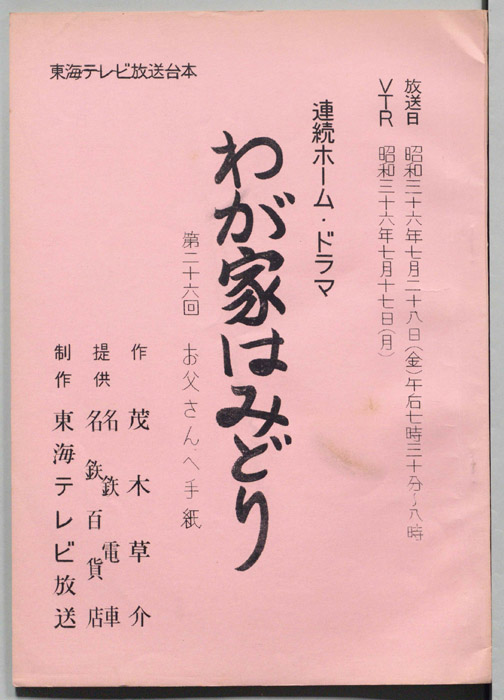 東海テレビ放送台本
放送日 昭和三十六年七月二十八日(金)午后七時三十分〜八時
VTR 昭和三十六年七月十七日(月)
連続ホーム・ドラマ
わが家はみどり
第二十六回 お父さんへ手紙
作 茂木草介
提供 名鉄電車
名鉄百貨店
制作 東海テレビ放送